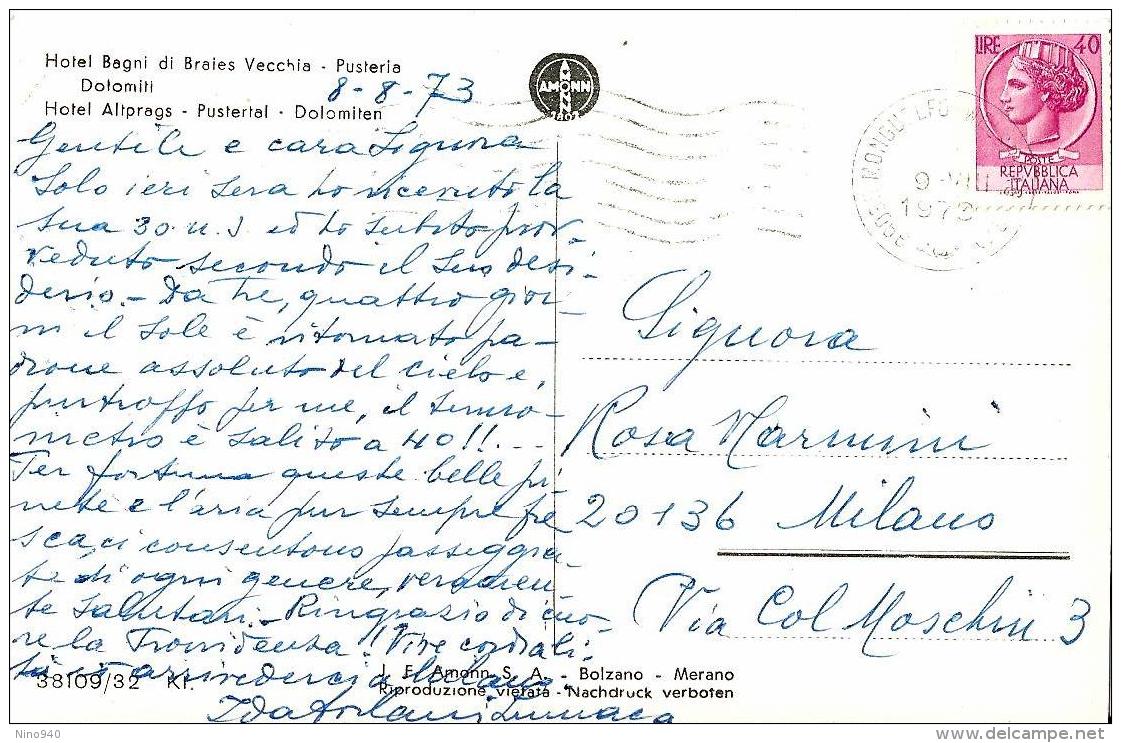 Hotel Bagni di Braies Vecchia - Pusteria
Dolomiti
8-8-73
Hotel Altprags - Pustertal - Dolomiten
AMONN
1802
LIRE 40
POSTE
REPVBBLICA
ITALIANA
9 VIII
1973
Gentile e cara Signora
Solo ieri sera ho ricevuto la
sua 30 u.s ed ho subito prov-
veduto secondo il suo desi-
derio.- Da tre, quattro gior-
ni il sole è ritornato pa-
drone assoluto del cielo e,
purtroppo per me, il termo-
metro è salito a 40!!...
Per fortuna queste belle pi-
nete e l'aria pur sempre fre
sca ci consentono passeggia-
te di ogni genere, veramen-
te salutari.- Ringrazio di cuo-
re la Provvidenza! Vive cordiali-
tà ed arrivederci a Milano.
Ida
Signora
Rosa Marmini
20136 Milano
Via Col Moschin 3
38109/32 Kf.
J. F. Amonn S. A. - Bolzano - Merano
Riproduzione vietata - Nachdruck verboten
Nino940
delcampe.net